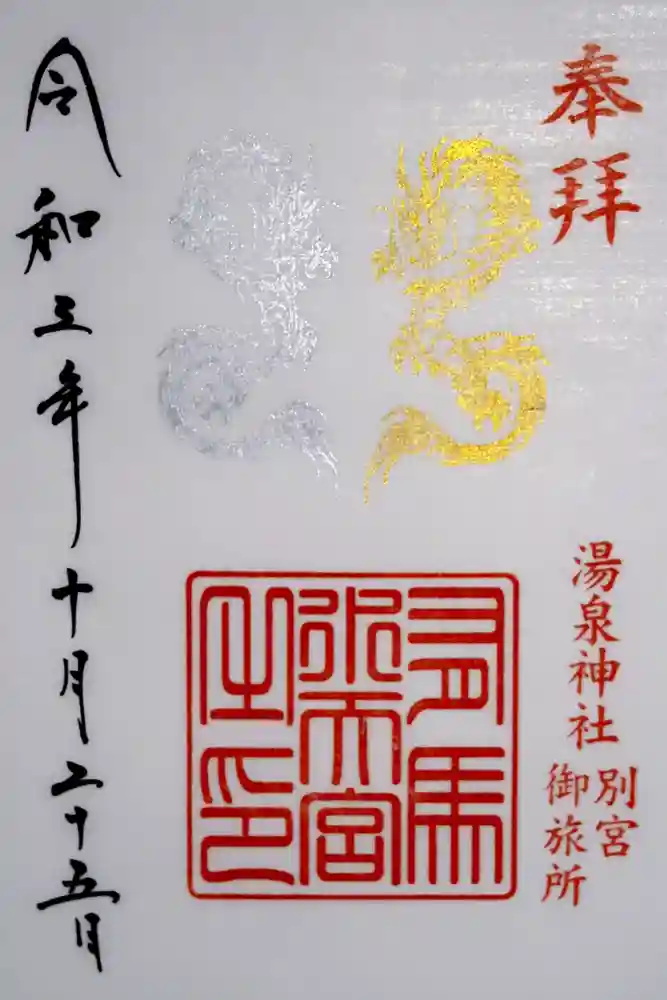 奉拝
湯泉神社
別宮
御旅所
有馬
水天宮
之印
令和三年十月二十五日